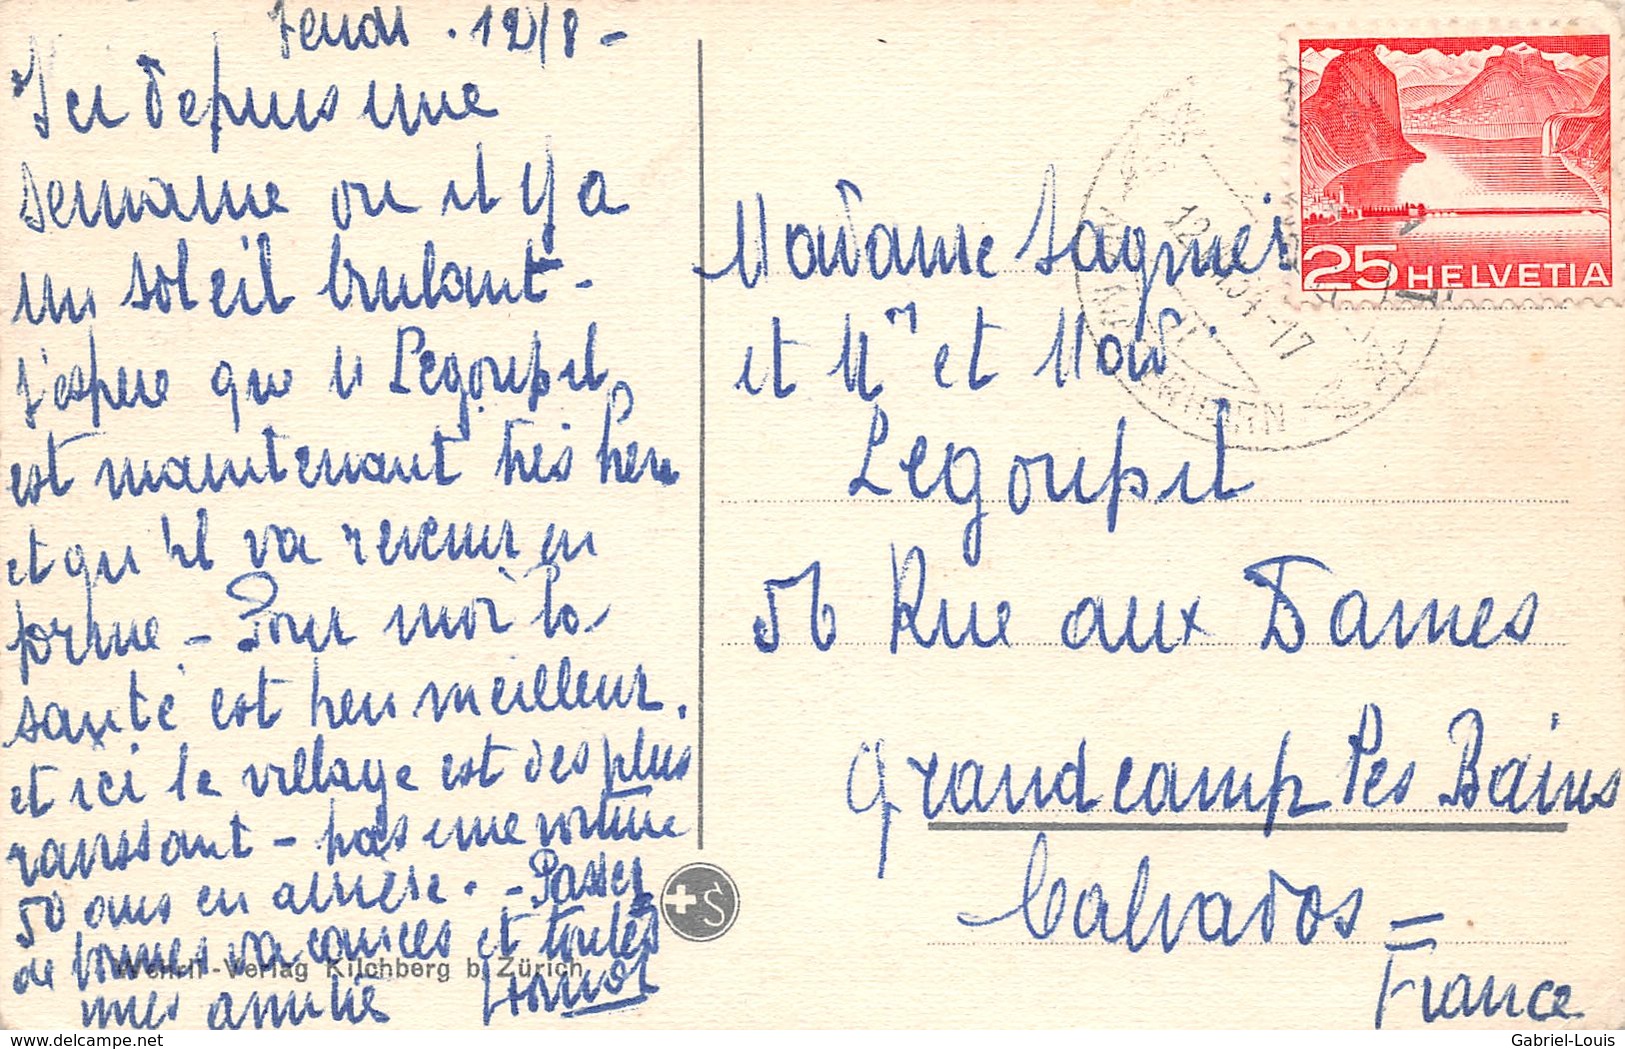 Jeudi . 12/8 -
Ici depuis une
semaine ou il y a
un soleil brulant -
J'espere que M Legoupil
est maintenant très bien
et qu'il va revenir en
forme - Pour moi la
santé est bien meilleur.
et ici le village est des plus
ravissant - pas une voiture
50 ans en arrière. - Passez
de bonnes vacances et toutes
mes amitié
Wehrli-Verlag Kilchberg b. Zürich
+S
25 HELVETIA
12. 54-17
Madame Lagnier
et Mr et Mad
Legoupil
56 Rue aux Dames
Grandcamp les Bains
Calvados =
France
delcampe.net
Gabriel-Louis